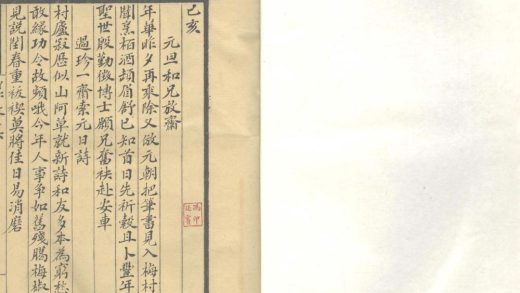 己亥
元旦和兄放齋
年華昨夕再來除又啟元朝把筆書見入梅村
栢酒眉舒已知首日先祈穀且卜豐年
聖世殷勤徵博士願兄奮袂赴安車
過珍一齋索元日詩
村廬寂似山阿草就新詩和友多本為窮
敢緣功令故頻哦今年人事爭如舊殘臘梅
見說閏春重祓禊莫將佳日易消磨